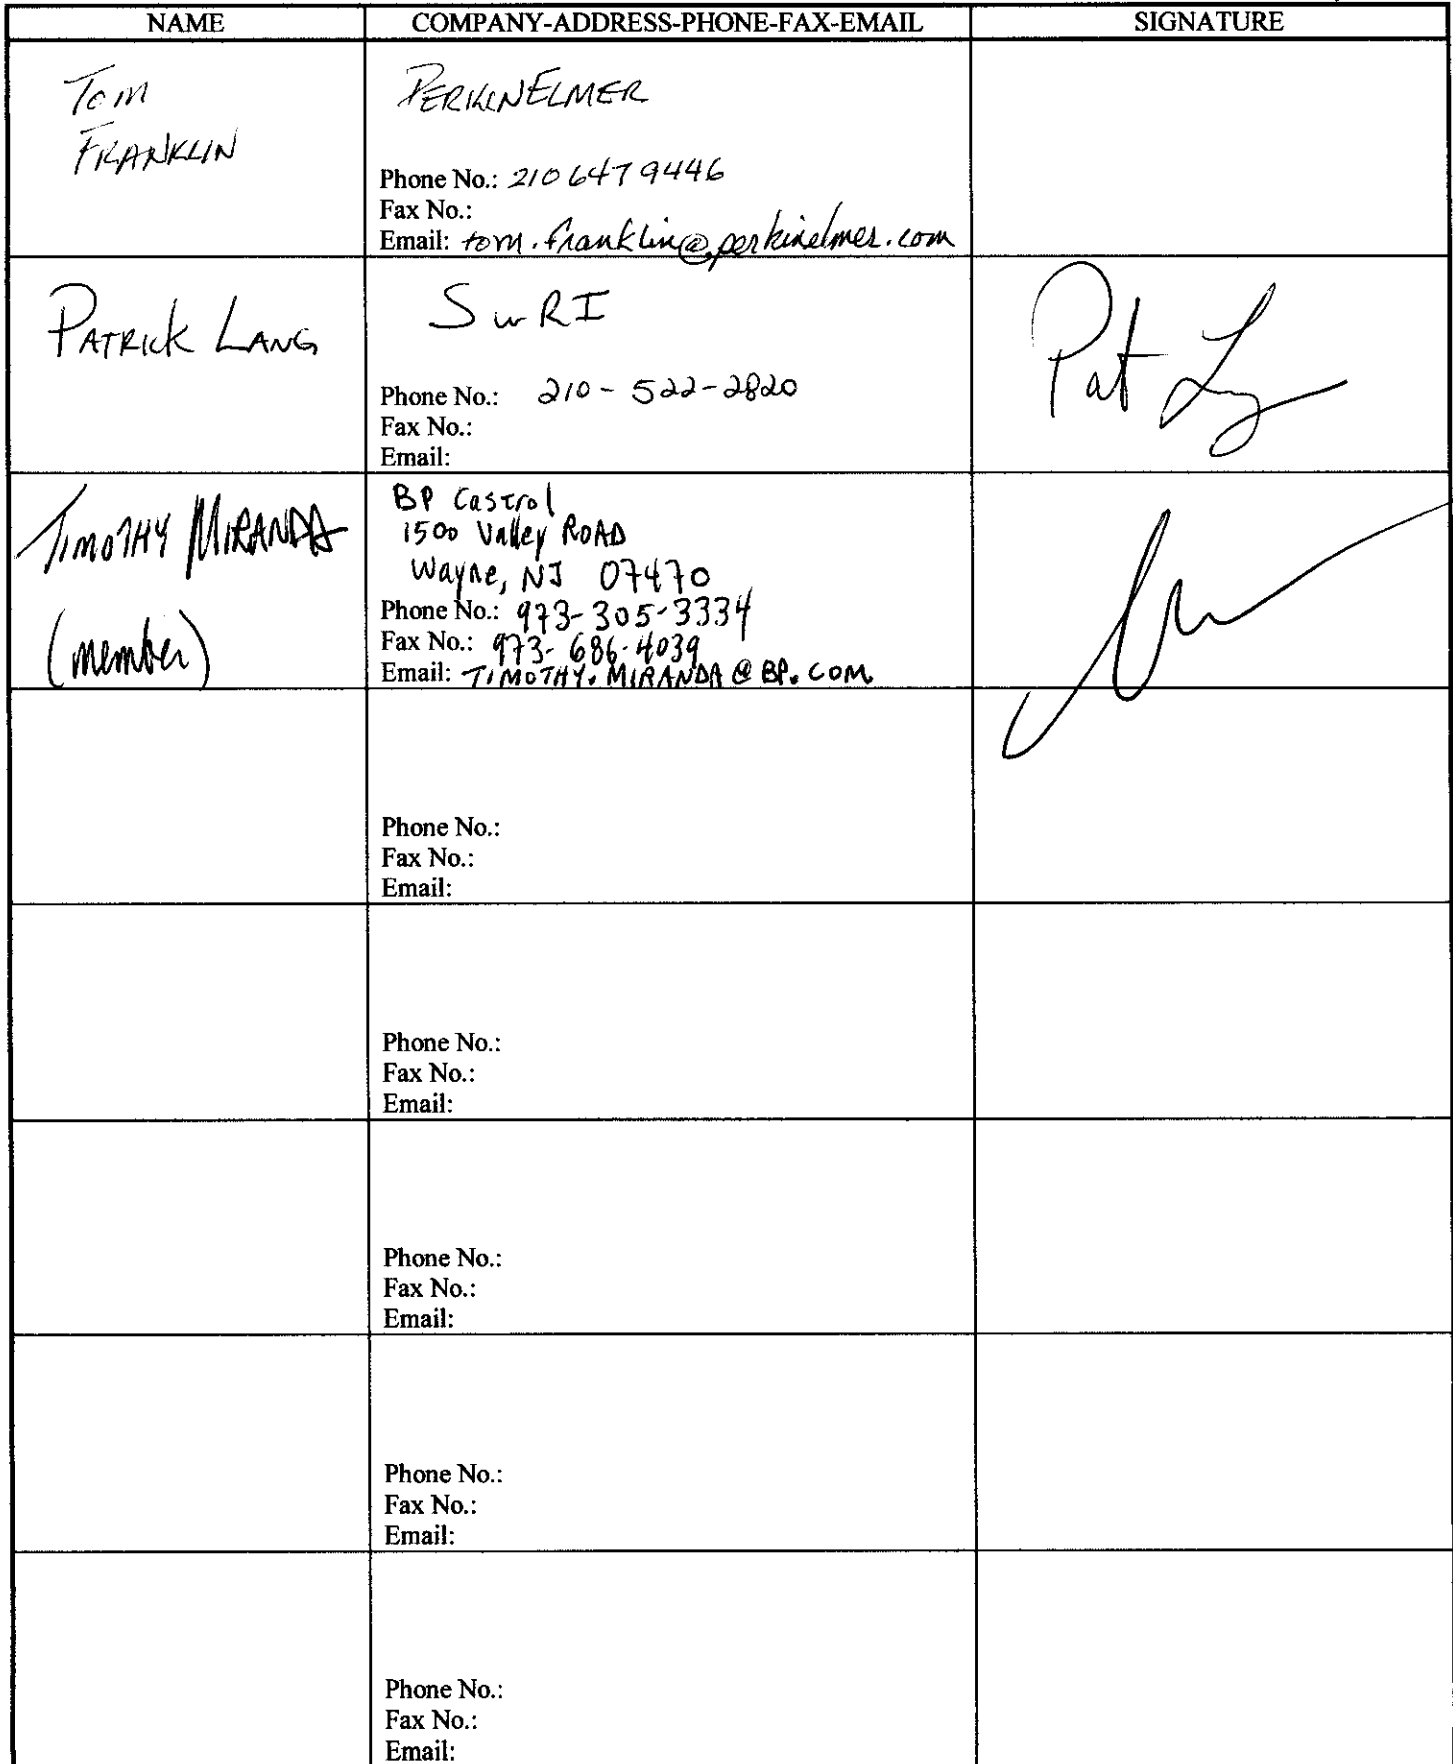 NAME COMPANY-ADDRESS-PHONE-FAX-EMAIL SIGNATURE
Tom
FRANKLIN
PERKINELMER
Phone No.: 210 647 9446
Fax No.:
Email: tom.franklin@perkinelmer.com
PATRICK LANG
SwRI
Phone No.: 210-522-2820
Fax No.:
Email:
Pat
TIMOTHY MIRANDA
(member)
BP Castrol
1500 Valley ROAD
Wayne, NJ 07470
Phone No.: 973-305-3334
Fax No.: 973-686-4039
Email: TIMOTHY.MIRANDA@BP.COM
Phone No.:
Fax No.:
Email:
Phone No.:
Fax No.:
Email:
Phone No.:
Fax No.:
Email:
Phone No.:
Fax No.:
Email:
Phone No.:
Fax No.:
Email: